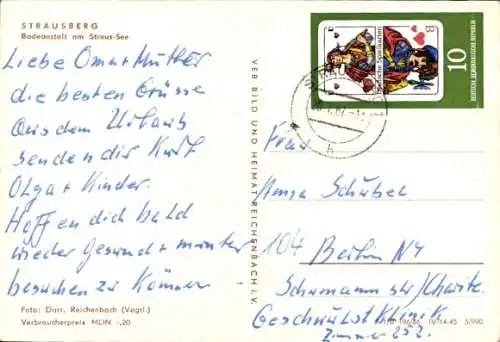 STRAUSBERG
Badeanstalt am Straus-See
Liebe Oma + Mutter
die besten Grüsse
Aus dem Urlaub
senden dir Kurt
Olga + Kinder.
Hoffen dich bald
wieder Gesund + munter
besuchen zu können
Foto: Darr, Reichenbach (Vogtl.)
Verbraucherpreis MDN -,20
VEB BILD UND HEIMAT REICHENBACH i. V.
Deutsche Spielkarten
B
10
DEUTSCHE DEMOKRATISCHE REPUBLIK
STRAUSBERG
Frau
Schübel
104 Berlin N4
Schumannstr) Charite.
Geschwulst Klinik
IV-14-45 5/990
Zimmer 252.